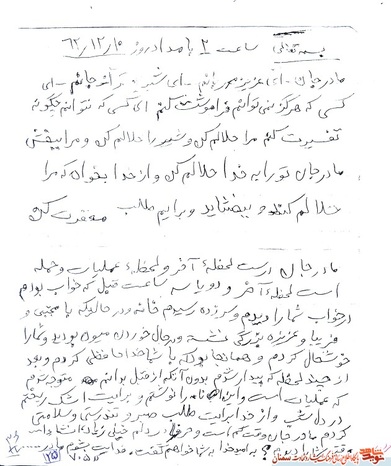 بسمه تعالی ساعت ۲ بامداد روز ۶۲/۱۲/۱۰
مادر جان - ای عزیز مهربانم - ای شیرین تر از جانم - ای
کسی که هرگز نمی توانم فراموشت کنم ای کسی که نتوانم چگونه
تفسیرت کنم مرا حلالم کن و شیرت را حلالم کن و مرا ببخش
مادر جان تو را به خدا حلالم کن و از خدا بخواه که مرا
حلالم کند و ببخشاید و برایم طلب مغفرت کن
مادر جان درست لحظهٔ آخر و لحظهٔ عملیات و حمله
است لحظهٔ آخر و دو یا سه ساعت قبل که خواب بودم
در خواب شما را دیدم و سرزده رسیدم خانه و در حالیکه با مجتبی و
فریبا و عزیزه بزرگی نشسته و در حال خوردن میوه بودید و شما را
خوشحال کردم و همانجا بود که با شما خداحافظی کردم و بعد
از چند لحظه که بیدار شدم بدون آنکه از قبل بدانم متوجه شدم
که عملیات است و این نامه را نوشتم و برایت اشک ریختم
در دلم و از خدا برایت طلب صبر و تندرستی و سلامتی
کردم مادر جان وقت کم است و حرف در دلم خیلی زیاد
خدا خواهم گفت فدایت مادر
۱۲۵